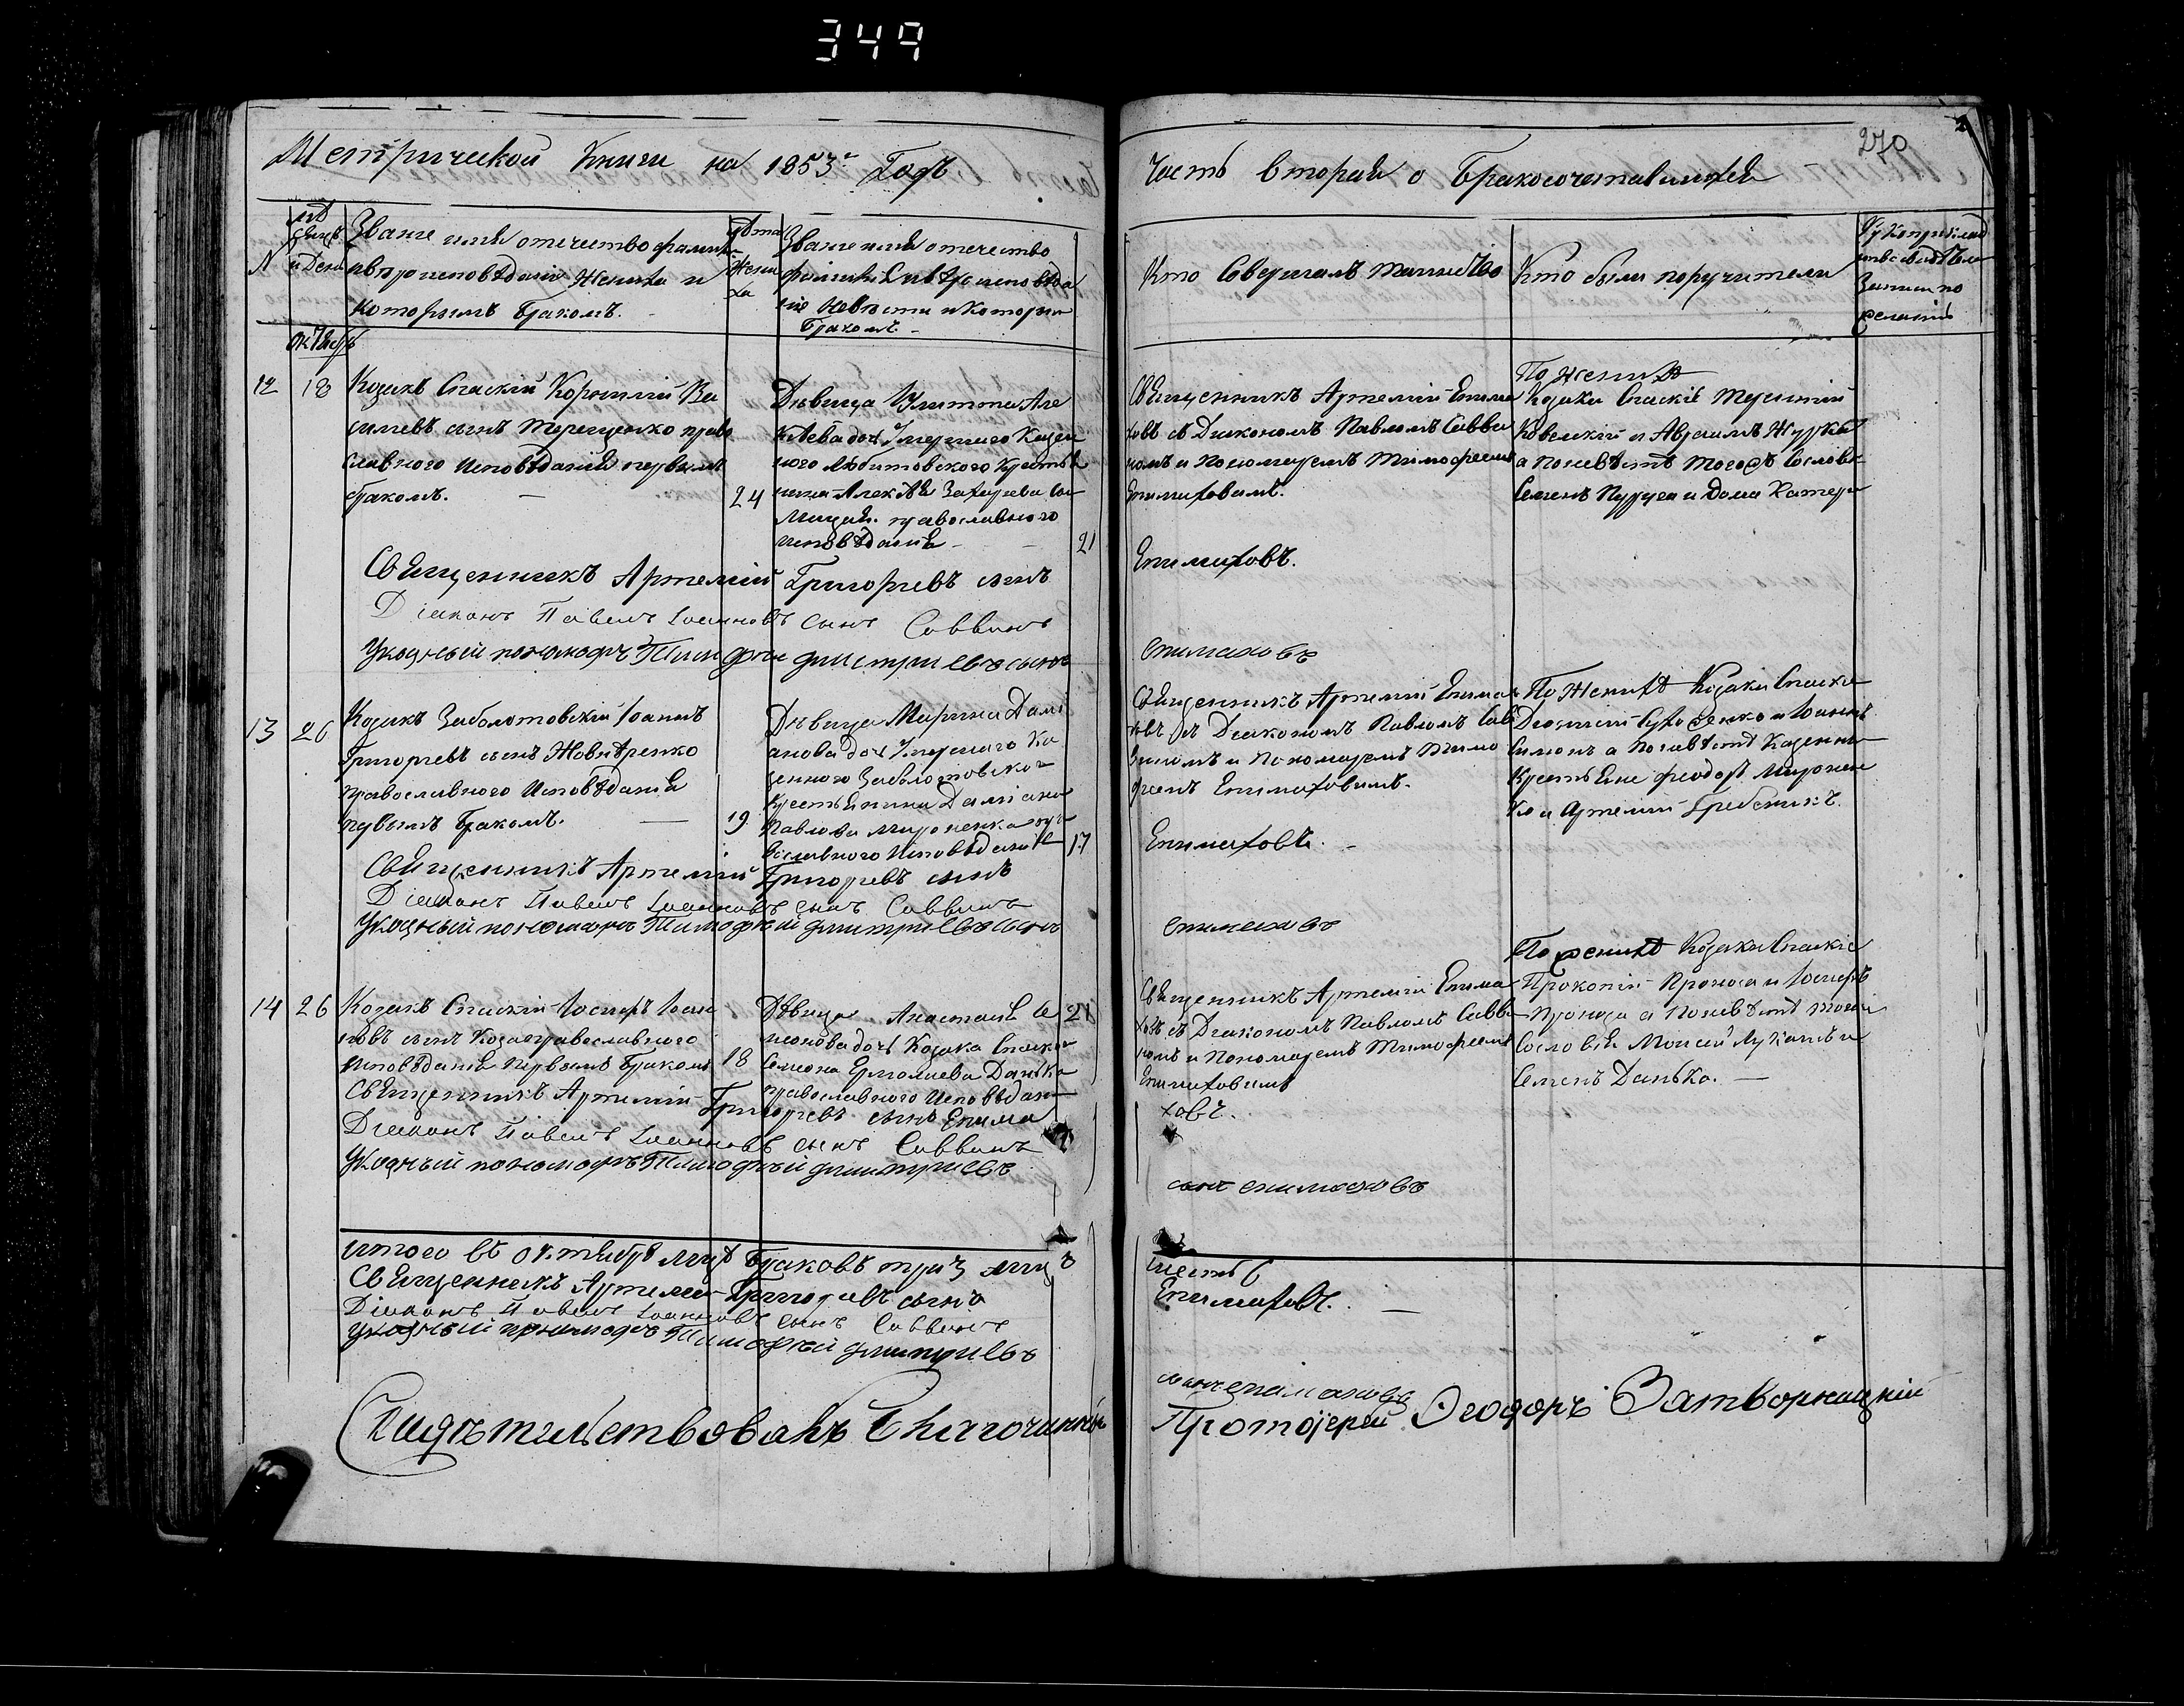 349
Метрической Книги на 1853й Годъ
Часть вторая о Бракосочетавшихся
270
N
мѣ
сяцъ
и День
Званіе имя отечество фамилія
и вѣроисповѣданіе Жениха и
которымъ Бракомъ.
лѣта
Жени
ха
Званіе имя отечество
фамилія и вѣроисповѣда
ніе Невѣсты и которымъ
Бракомъ
Кто Совершалъ таинство
Кто были поручители
Рукоприклад
ство свидѣтелей
Записи по
желанію
октябрь
12
18
Козакъ Спаскій Корнилій Ва
силіевъ сынъ Терещенко право
славного Исповѣданія первымъ
бракомъ.
24
Дѣвица Улитта Але
ксѣева дочь Умершаго Казен
ного Любитовского Крестья
нина Алексѣя Захарева
православного
исповѣданія
21
Священникъ Артемій Епима
ховъ съ Діякономъ Павломъ Савви
номъ и Пономаремъ Тимофеемъ
Епимаховымъ.
По Женихѣ
Козаки Спаскіе Терентій
Ковелскій и Авраамъ Журба
а По невѣстѣ Тогожъ Сословія
Семенъ Пуруга и Дома Катери
Священникъ Артемій Григорьевъ сынъ
Епимаховъ.
Діаконъ Павелъ Іоанновъ сынъ Саввинъ
Указный пономарь Тимофей Дмитриевъ сынъ
епимаховъ
13
26
Козакъ Заболотовскій Іоаннъ
Григорьевъ сынъ Жовнѣренко
православного Исповѣданія
первымъ бракомъ.
19
Дѣвица Марина Дамі
анова дочь Умершаго Ка
зенного Заболотовского
Крестьянина Даміана
Павлова Мироненка пра
вославного Исповѣданія
17
Священникъ Артемій Епима
ховъ съ Діякономъ Павломъ Сав
виномъ и Пономаремъ Тимо
феемъ Епимаховымъ.
По Женихѣ Козаки Спаскіе
и Іоаннъ
а По невѣстѣ Казенные
Крестьяне Феодоръ Миронен
ко и Артемій Гребеникъ.
Священникъ Артемій Григорьевъ сынъ
Епимаховъ.
Діаконъ Павелъ Іоанновъ сынъ Саввинъ
Указный пономарь Тимофей Дмитриевъ сынъ
епимаховъ
14
26
Козакъ Спаскій Іосифъ Іоан
новъ сынъ Коза православного
Исповѣданія Первымъ Бракомъ
18
Дѣвица Анастасія Се
меонова дочь Козака Спаского
Семеона Ермолаева Данька
православного Исповѣданія
21
Священникъ Артемій Епима
ховъ съ Діякономъ Павломъ Савви
номъ и Пономаремъ Тимофеемъ
Епимаховымъ
По женихѣ Козаки Спаскіе
Прокопій Проноза и Іосифъ
Проноза а По невѣстѣ тогожъ
Сословія Моисей Луканъ и
Семенъ Данько.
Священникъ Артемій Григорьевъ сынъ Епима
ховъ.
Діаконъ Павелъ Іоанновъ сынъ Саввинъ
Указный пономарь Тимофей Дмитриевъ
сынъ епимаховъ
итого въ октябрѣ мцѣ Браковъ три 3 лицъ
шесть 6
Священникъ Артемій Григорьевъ сынъ
Епимаховъ.
Діаконъ Павелъ Іоанновъ сынъ Саввинъ
Указный пономарь Тимофей Дмитриевъ
сынъ епимаховъ
Свидѣтельствовалъ Благочинный
Протоіерей Ѳеодоръ Затворницкій